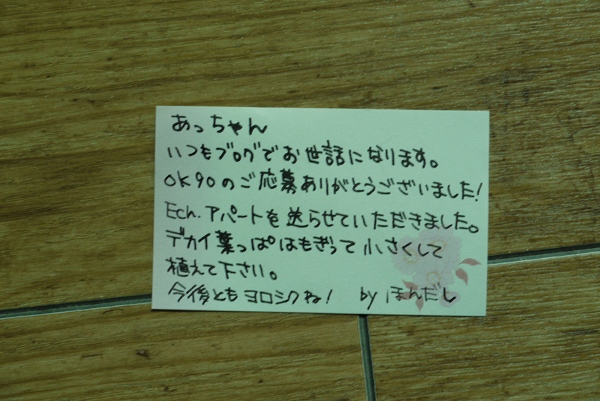 あっちゃん
いつもブログでお世話になります。
OK90のご応募ありがとうございました!
Ech.アパートを送らせていただきました。
デカイ葉っぱはもぎって小さくして
植えて下さい。
今後ともヨロシクね! by ほんだし